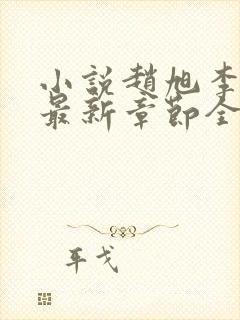 小說趙旭李
最新章節全
耳戈